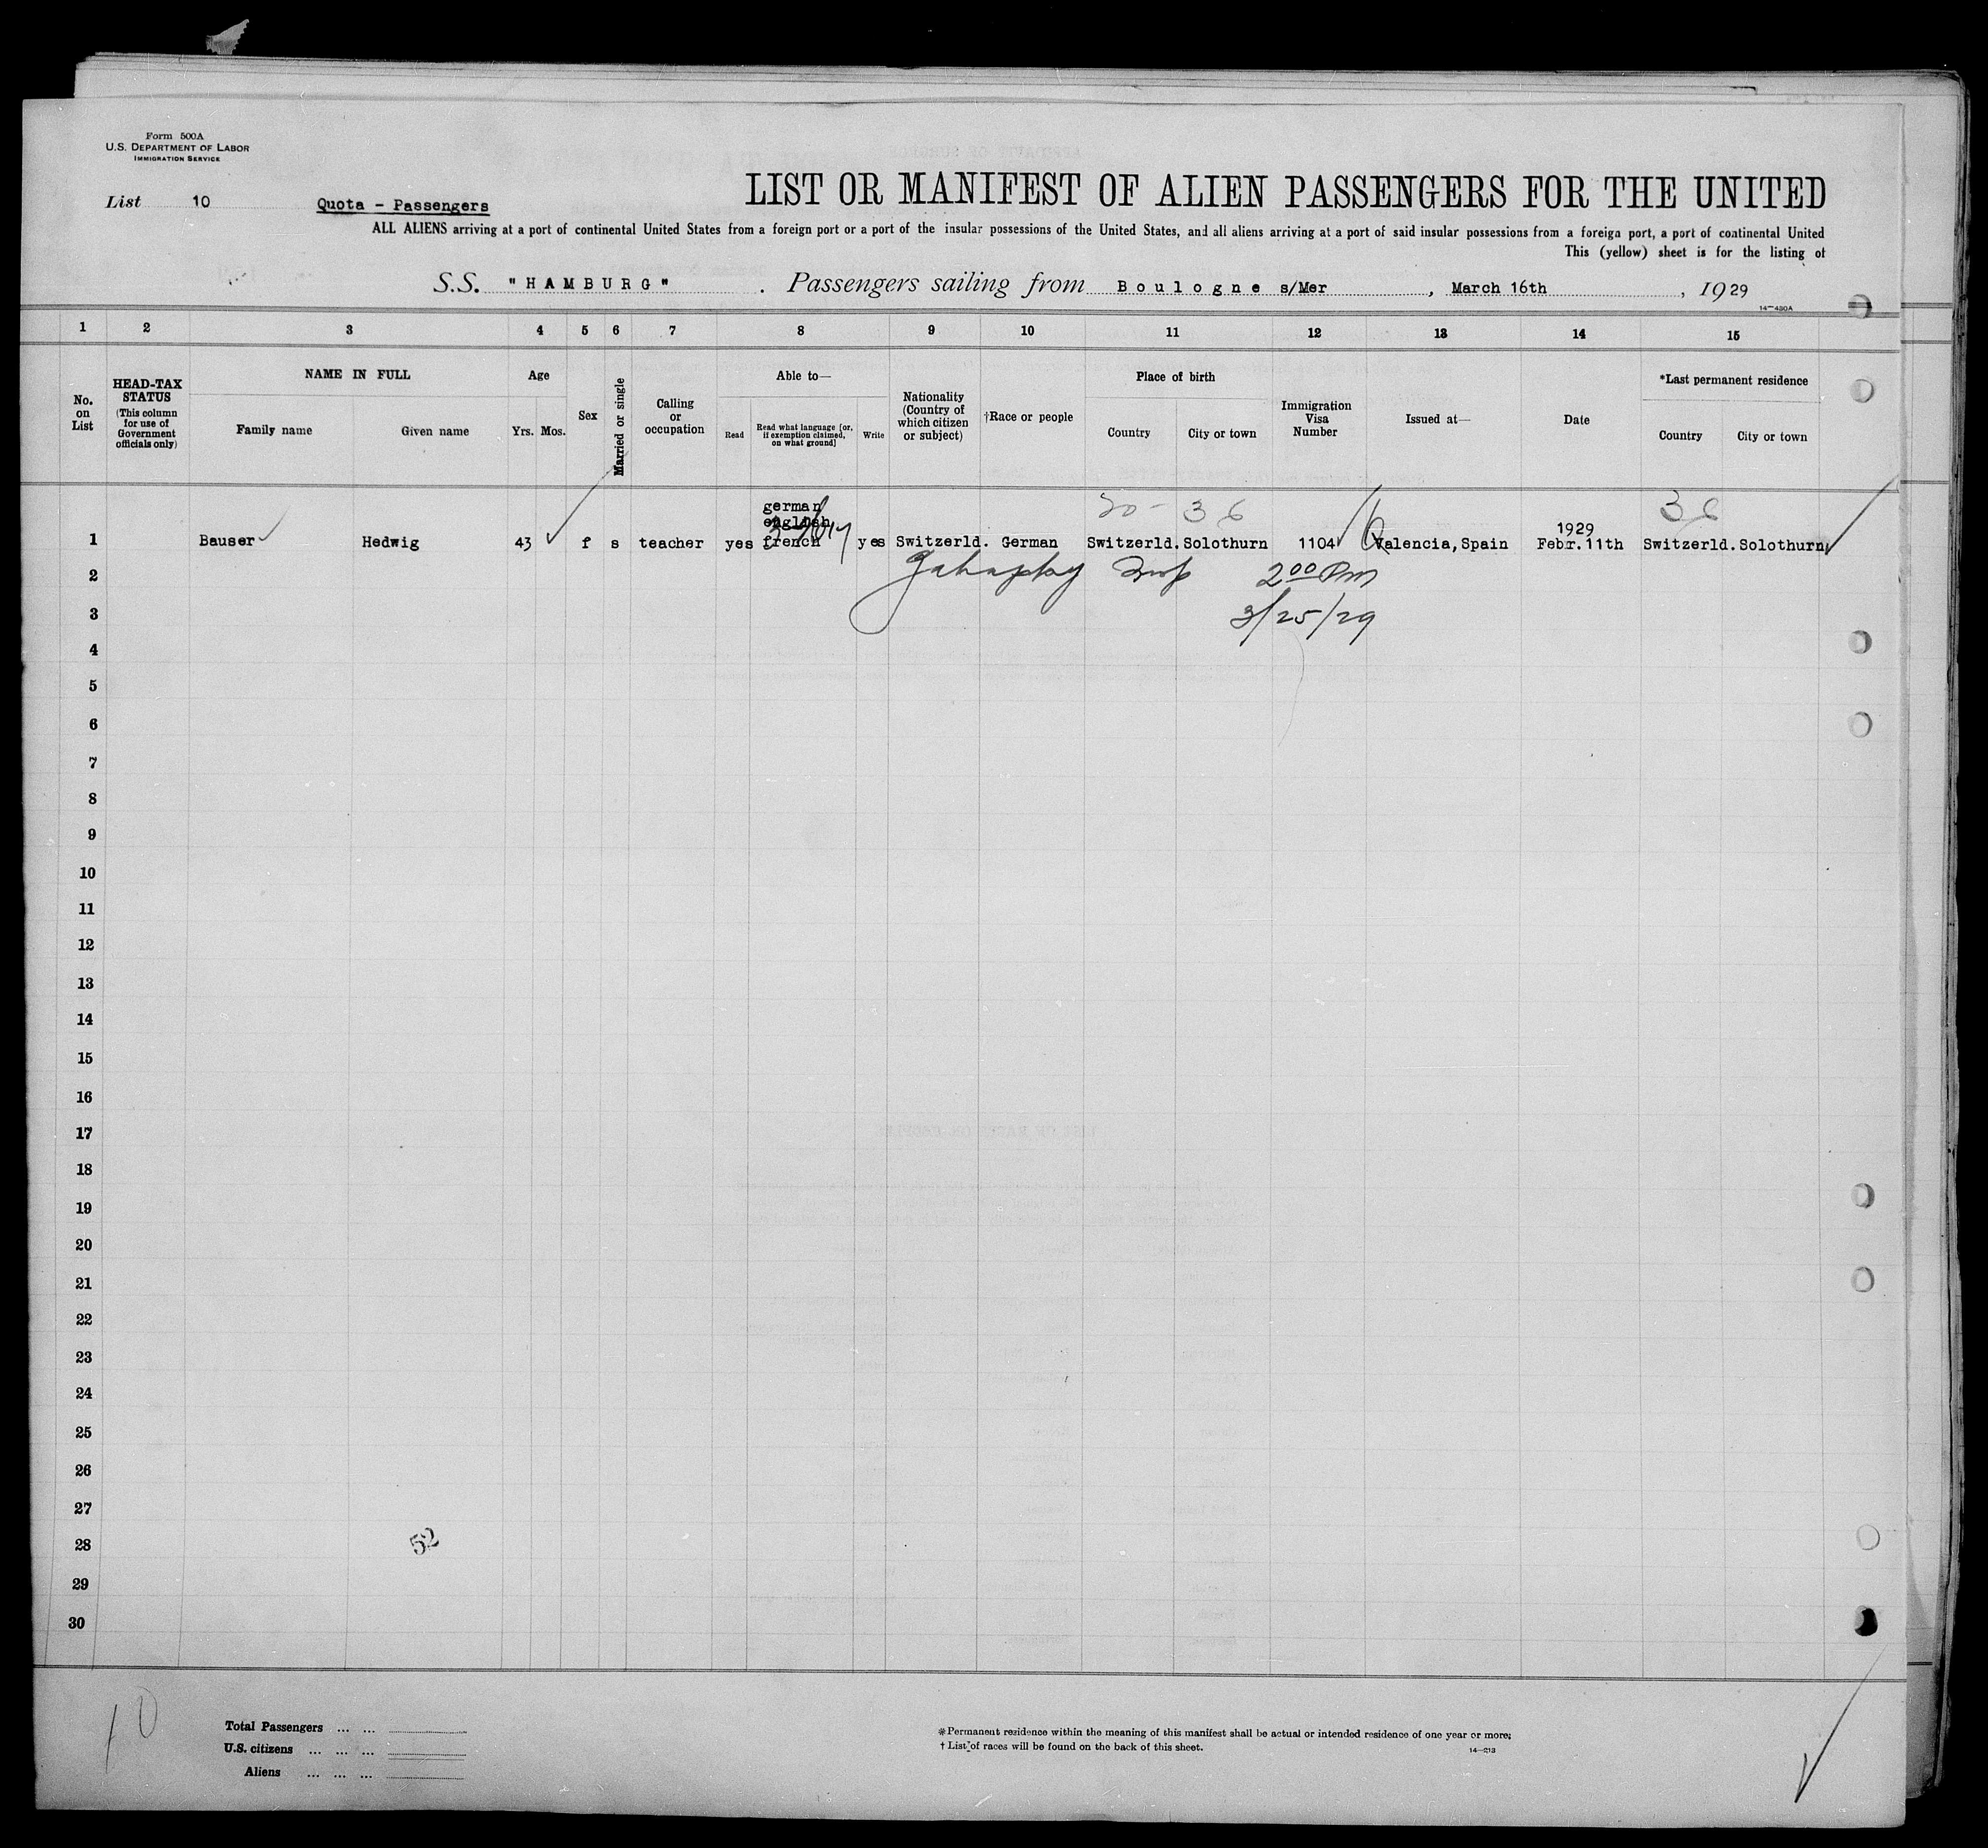 Form 500A
U.S. DEPARTMENT OF LABOR
IMMIGRATION SERVICE
List 10 Quota - Passengers
LIST OR MANIFEST OF ALIEN PASSENGERS FOR THE UNITED
ALL ALIENS arriving at a port of continental United States from a foreign port or a port of the insular possessions of the United States, and all aliens arriving at a port of said insular possessions from a foreign port, a port of continental United
This (yellow) sheet is for the listing of
S.S. "HAMBURG" . Passengers sailing from Boulogne s/Mer , March 16th , 1929
14-430A
1 2 3 4 5 6 7 8 9 10 11 12 13 14 15
No. on List
HEAD-TAX STATUS
(This column for use of Government officials only)
NAME IN FULL
Family name Given name
Age
Yrs. Mos.
Sex
Married or single
Calling or occupation
Able to—
Read
Read what language [or, if exemption claimed, on what ground]
Write
Nationality (Country of which citizen or subject)
†Race or people
Place of birth
Country City or town
Immigration Visa Number
Issued at—
Date
*Last permanent residence
Country City or town
20 - 36 36
german
english
1929
1 Bauser Hedwig 43 f s teacher yes french yes Switzerld. German Switzerld. Solothurn 1104 Valencia, Spain Febr. 11th Switzerld. Solothurn
2 2 00 Pm
3 3/25/29
4
5
6
7
8
9
10
11
12
13
14
15
16
17
18
19
20
21
22
23
24
25
26
27
28 52
29
30
10
Total Passengers ... ...
U.S. citizens ... ... ...
Aliens ... ... ...
*Permanent residence within the meaning of this manifest shall be actual or intended residence of one year or more.
† List of races will be found on the back of this sheet.
14-213